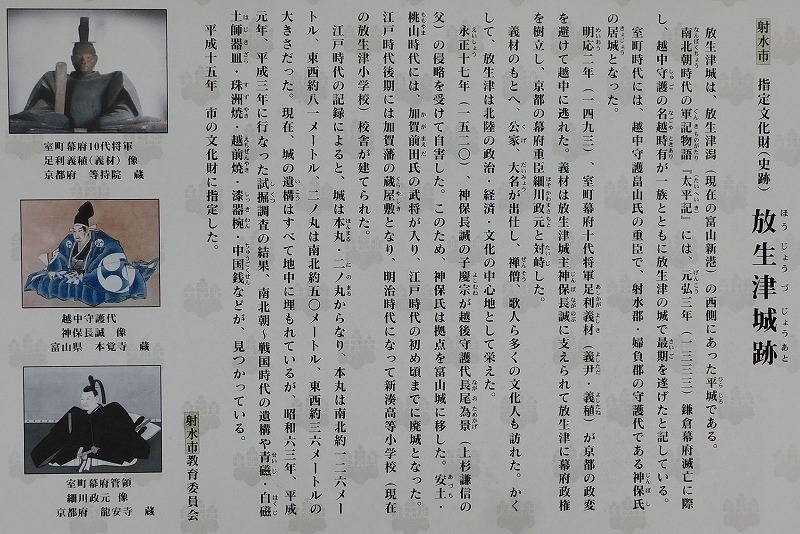 射水市 指定文化財(史跡) 放生津城跡
ほうじょうづじょうあと
放生津城は、放生津潟(現在の富山新港)の西側にあった平城である。
南北朝時代の軍記物語『太平記』には、元弘三年(一三三三)鎌倉幕府滅亡に際
し、越中守護の名越時有が一族とともに放生津の城で最期を遂げたと記している。
室町時代には、越中守護畠山氏の重臣で、射水郡・婦負郡の守護代である神保氏
の居城となった。
明応二年(一四九三)、室町幕府十代将軍足利義材(義尹・義稙)が京都の政変
を避けて越中に逃れた。義材は放生津城主神保長誠に支えられて放生津に幕府政権
を樹立し、京都の幕府重臣細川政元と対峙した。
義材のもとへ、公家、大名が出仕し、禅僧、歌人ら多くの文化人も訪れた。かく
して、放生津は北陸の政治・経済・文化の中心地として栄えた。
永正十七年(一五二〇)、神保長誠の子慶宗が越後守護代長尾為景(上杉謙信の
父)の侵略を受けて自害した。このため、神保氏は拠点を富山城に移した。安土・
桃山時代には、加賀前田氏の武将が入り、江戸時代の初め頃までに廃城となった。
江戸時代後期には加賀藩の蔵屋敷となり、明治時代になって新湊高等小学校(現在
の放生津小学校)校舎が建てられた。
江戸時代の記録によると、城は本丸・二ノ丸からなり、本丸は南北約一二六メー
トル、東西約八一メートル、二ノ丸は南北約五〇メートル、東西約三六メートルの
大きさだった。現在、城の遺構はすべて地中に埋もれているが、昭和六三年、平成
元年、平成三年に行なった試掘調査の結果、南北朝〜戦国時代の遺構や青磁・白磁
土師器皿・珠洲焼・越前焼・漆器椀、中国銭などが、見つかっている。
平成十五年 市の文化財に指定した。
射水市教育委員会
室町幕府10代将軍
足利義稙(義材)像
京都府 等持院 蔵
越中守護代
神保長誠 像
富山県 本覚寺 蔵
室町幕府管領
細川政元 像
京都府 龍安寺 蔵